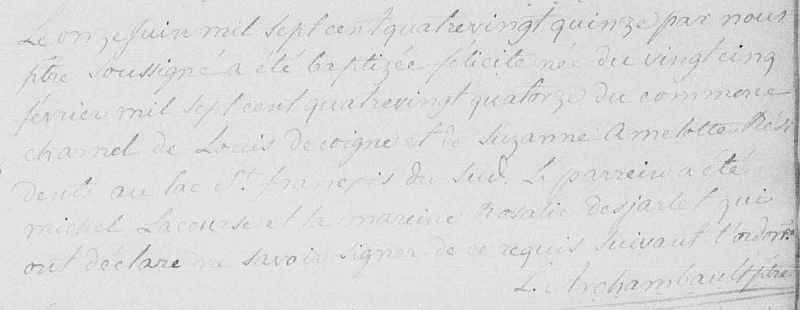 Le onze Juin mil sept cent quatrevingt quinze par nous
ptre soussigné a été baptizée félicité née du vingt cinq
février mil sept cent quatrevingt quatorze du commerce
charnel de Louis decoigne et de Suzanne Amelotte Rési
dents au lac St. françois du Sud. Le parrein a été
michel Lacourse et la mareine Rosalie desjarlet qui
ont déclaré ne savoir signer de ce requis suivant l'ordonce
L. Archambault ptre